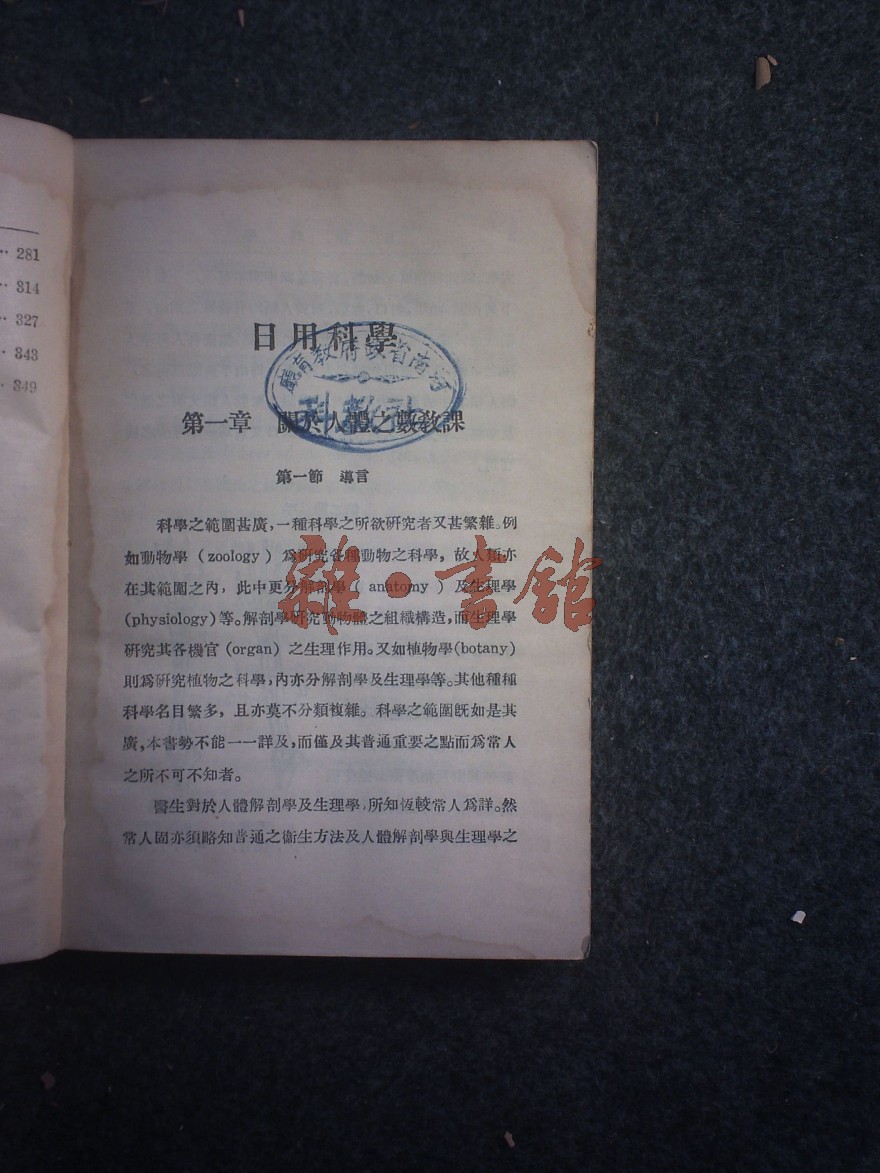 281
314
327
343
349
日用科學
河南省政府教育廳
社教科
第一章 關於人體之數教課
第一節 導言
科學之範圍甚廣，一種科學之所欲研究者又甚繁雜。例
如動物學（zoology）爲研究各種動物之科學，故人類亦
在其範圍之內，此中更分解剖學（anatomy）及生理學
(physiology)等。解剖學研究動物體之組織構造，而生理學
研究其各機官（organ）之生理作用。又如植物學(botany)
則爲研究植物之科學，內亦分解剖學及生理學等。其他種種
科學名目繁多，且亦莫不分類複雜。科學之範圍旣如是其
廣，本書勢不能一一詳及，而僅及其普通重要之點而爲常人
之所不可不知者。
醫生對於人體解剖學及生理學，所知恆較常人爲詳。然
常人固亦須略知普通之衞生方法及人體解剖學與生理學之
雜·書館